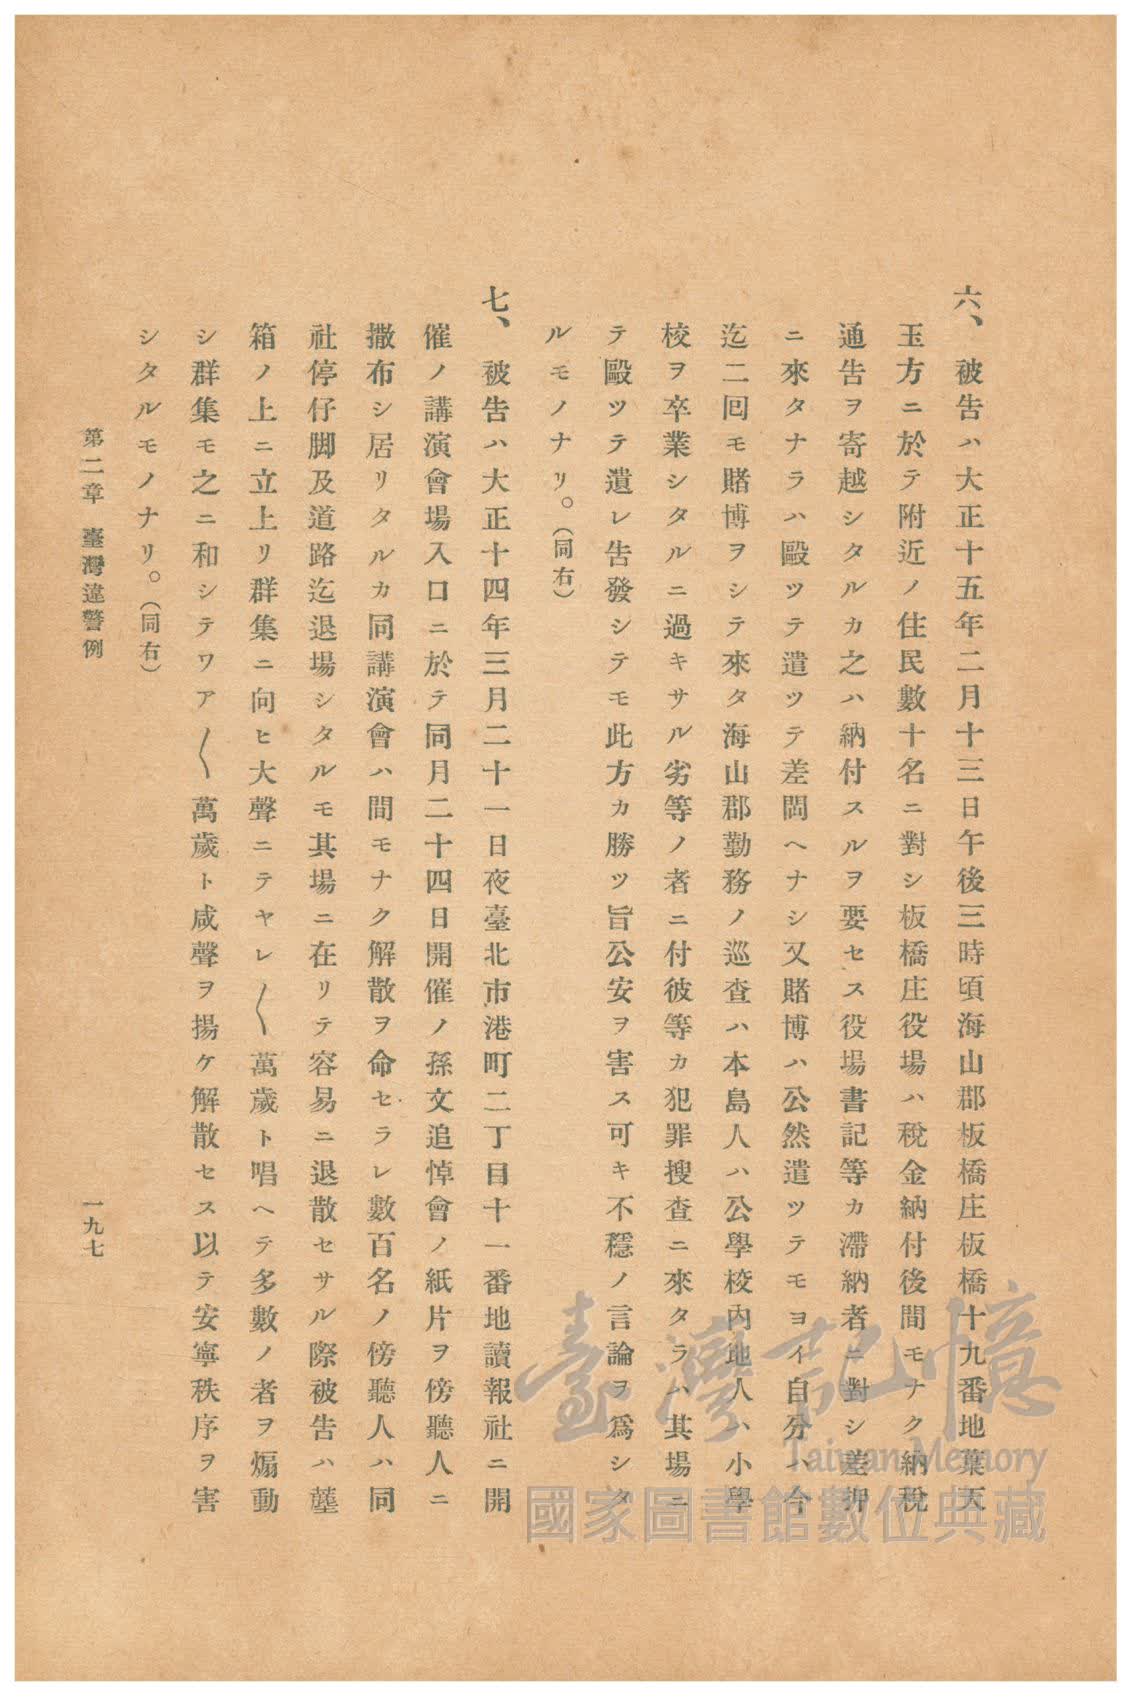 六、被告ハ大正十五年二月十三日午後三時頃海山郡板橋庄板橋十九番地葉天
玉方ニ於テ附近ノ住民數十名ニ對シ板橋庄役場ハ稅金納付後間モナク納稅
通告ヲ寄越シタルカ之ハ納付スルヲ要セス役場書記等カ滯納者ニ對シ差押
ニ來タナラハ毆ツテ遣ツテ差閊ヘナシ又賭博ハ公然遣ツテモヨイ自分ハ今
迄二囘モ賭博ヲシテ來タ海山郡勤務ノ巡査ハ本島人ハ公學校內地人ハ小學
校ヲ卒業シタルニ過キサル劣等ノ者ニ付彼等カ犯罪搜査ニ來タラハ其場ニ
テ毆ツテ遺レ告發シテモ此方カ勝ツ旨公安ヲ害ス可キ不穩ノ言論ヲ爲シタ
ルモノナリ。(同右)
七、被告ハ大正十四年三月二十一日夜臺北市港町二丁目十一番地讀報社ニ開
催ノ講演會場入口ニ於テ同月二十四日開催ノ孫文追悼會ノ紙片ヲ傍聽人ニ
撒布シ居リタルカ同講演會ハ間モナク解散ヲ命セラレ數百名ノ傍聽人ハ同
社停仔脚及道路迄退場シタルモ其場ニ在リテ容易ニ退散セサル際被告ハ蓙
箱ノ上ニ立上リ群集ニ向ヒ大聲ニテヤレ〱萬歲ト唱ヘテ多數ノ者ヲ煽動
シ群集モ之ニ和シテワア〱萬歲ト咸聲ヲ揚ケ解散セス以テ安寧秩序ヲ害
シタルモノナリ。(同右)
第二章 臺灣違警例
一九七
臺灣記憶
Taiwan Memory
國家圖書館數位典藏